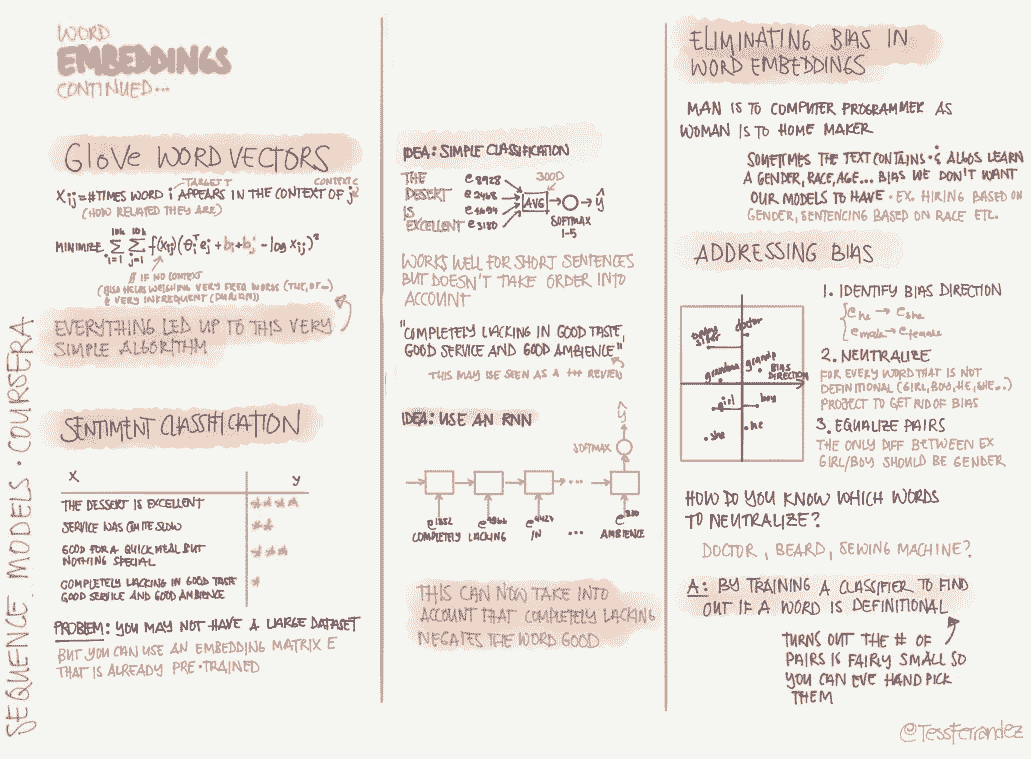 WORD
EMBEDDINGS
CONTINUED...
SEQUENCE MODELS · COURSERA
GloVe WORD VECTORS
TARGET T
CONTEXT C
Xij = # TIMES WORD i APPEARS IN THE CONTEXT OF j
(HOW RELATED THEY ARE)
MINIMIZE Σ Σ f(Xij)(θiᵀej + bi + bj' - log Xij)²
10k 10k
i=1 j=1
IF NO CONTEXT
(ALSO HELPS WEIGHING VERY FREQ WORDS (THE, OF...)
& VERY INFREQUENT (DURIAN))
EVERYTHING LED UP TO THIS VERY
SIMPLE ALGORITHM
SENTIMENT CLASSIFICATION
X y
THE DESSERT IS EXCELLENT ★★★★
SERVICE WAS QUITE SLOW ★★
GOOD FOR A QUICK MEAL BUT
NOTHING SPECIAL ★★★
COMPLETELY LACKING IN GOOD TASTE
GOOD SERVICE AND GOOD AMBIENCE ★
PROBLEM: YOU MAY NOT HAVE A LARGE DATASET
BUT YOU CAN USE AN EMBEDDING MATRIX E
THAT IS ALREADY PRE·TRAINED
IDEA: SIMPLE CLASSIFICATION
THE e8928
DESERT e2468
IS e4694
EXCELLENT e3180
300D
AVG
ŷ
SOFTMAX
1-5
WORKS WELL FOR SHORT SENTENCES
BUT DOESN'T TAKE ORDER INTO
ACCOUNT
"COMPLETELY LACKING IN GOOD TASTE,
GOOD SERVICE AND GOOD AMBIENCE"
THIS MAY BE SEEN AS A +++ REVIEW
IDEA: USE AN RNN
ŷ
SOFTMAX
...
e1852 e4966 e4427 e330
COMPLETELY LACKING IN ... AMBIENCE
THIS CAN NOW TAKE INTO
ACCOUNT THAT COMPLETELY LACKING
NEGATES THE WORD GOOD
ELIMINATING BIAS IN
WORD EMBEDDINGS
MAN IS TO COMPUTER PROGRAMMER AS
WOMAN IS TO HOME MAKER
SOMETIMES THE TEXT CONTAINS · & ALGOS LEARN
A GENDER, RACE, AGE... BIAS WE DON'T WANT
OUR MODELS TO HAVE · EX. HIRING BASED ON
GENDER, SENTENCING BASED ON RACE ETC.
ADDRESSING BIAS
doctor
grandma
grandp
BIAS
DIRECTION
girl
boy
she
he
1. IDENTIFY BIAS DIRECTION
ehe → eshe
emale → efemale
2. NEUTRALIZE
FOR EVERY WORD THAT IS NOT
DEFINITIONAL (GIRL, BOY, HE, SHE..)
PROJECT TO GET RID OF BIAS
3. EQUALIZE PAIRS
THE ONLY DIFF BETWEEN EX
GIRL/BOY SHOULD BE GENDER
HOW DO YOU KNOW WHICH WORDS
TO NEUTRALIZE?
DOCTOR, BEARD, SEWING MACHINE?
A: BY TRAINING A CLASSIFIER TO FIND
OUT IF A WORD IS DEFINITIONAL
TURNS OUT THE # OF
PAIRS IS FAIRLY SMALL SO
YOU CAN EVE HAND PICK
THEM
@TessFerrandez